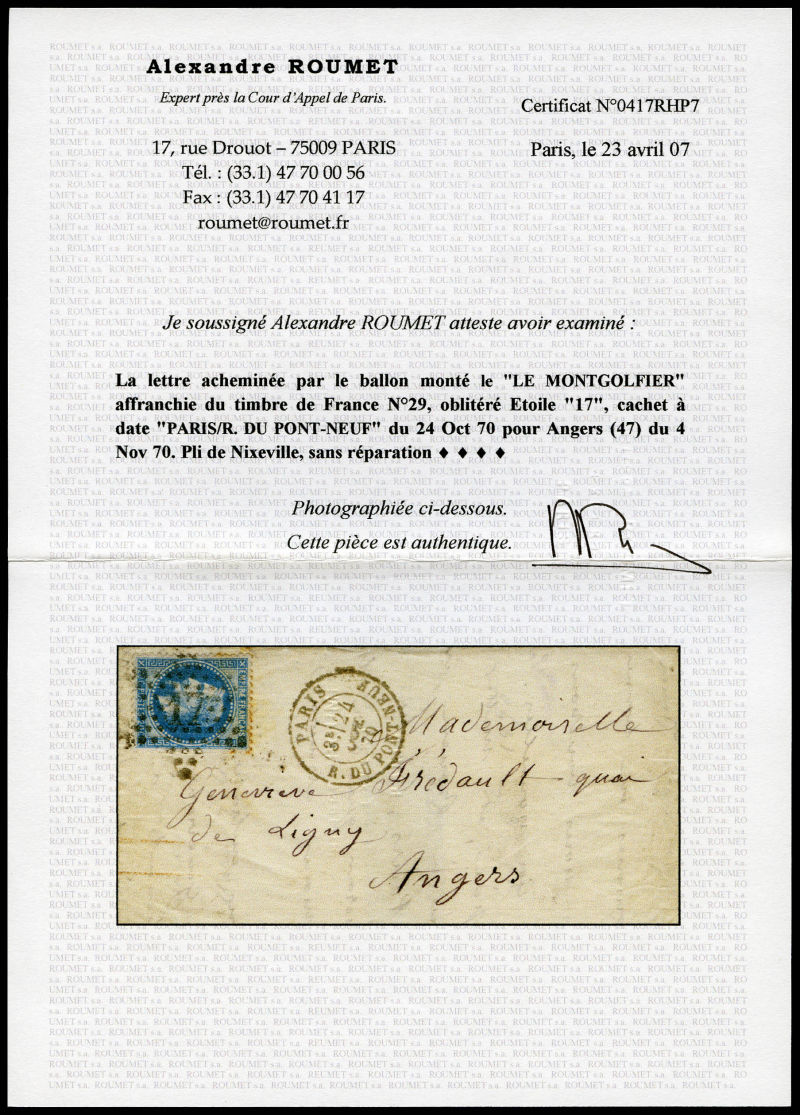 Alexandre ROUMET
Expert près la Cour d'Appel de Paris.
17, rue Drouot – 75009 PARIS
Tél. : (33.1) 47 70 00 56
Fax : (33.1) 47 70 41 17
roumet@roumet.fr
Certificat N°0417RHP7
Paris, le 23 avril 07
Je soussigné Alexandre ROUMET atteste avoir examiné :
La lettre acheminée par le ballon monté le "LE MONTGOLFIER"
affranchie du timbre de France N°29, oblitéré Etoile "17", cachet à
date "PARIS/R. DU PONT-NEUF" du 24 Oct 70 pour Angers (47) du 4
Nov 70. Pli de Nixeville, sans réparation ♦ ♦ ♦ ♦
Photographiée ci-dessous.
Cette pièce est authentique.
EMPIRE FRANC
17
PARIS
R. DU PONT-NEUF
24
70
Mademoiselle
Genevieve Frédault quai
de Ligny
Angers